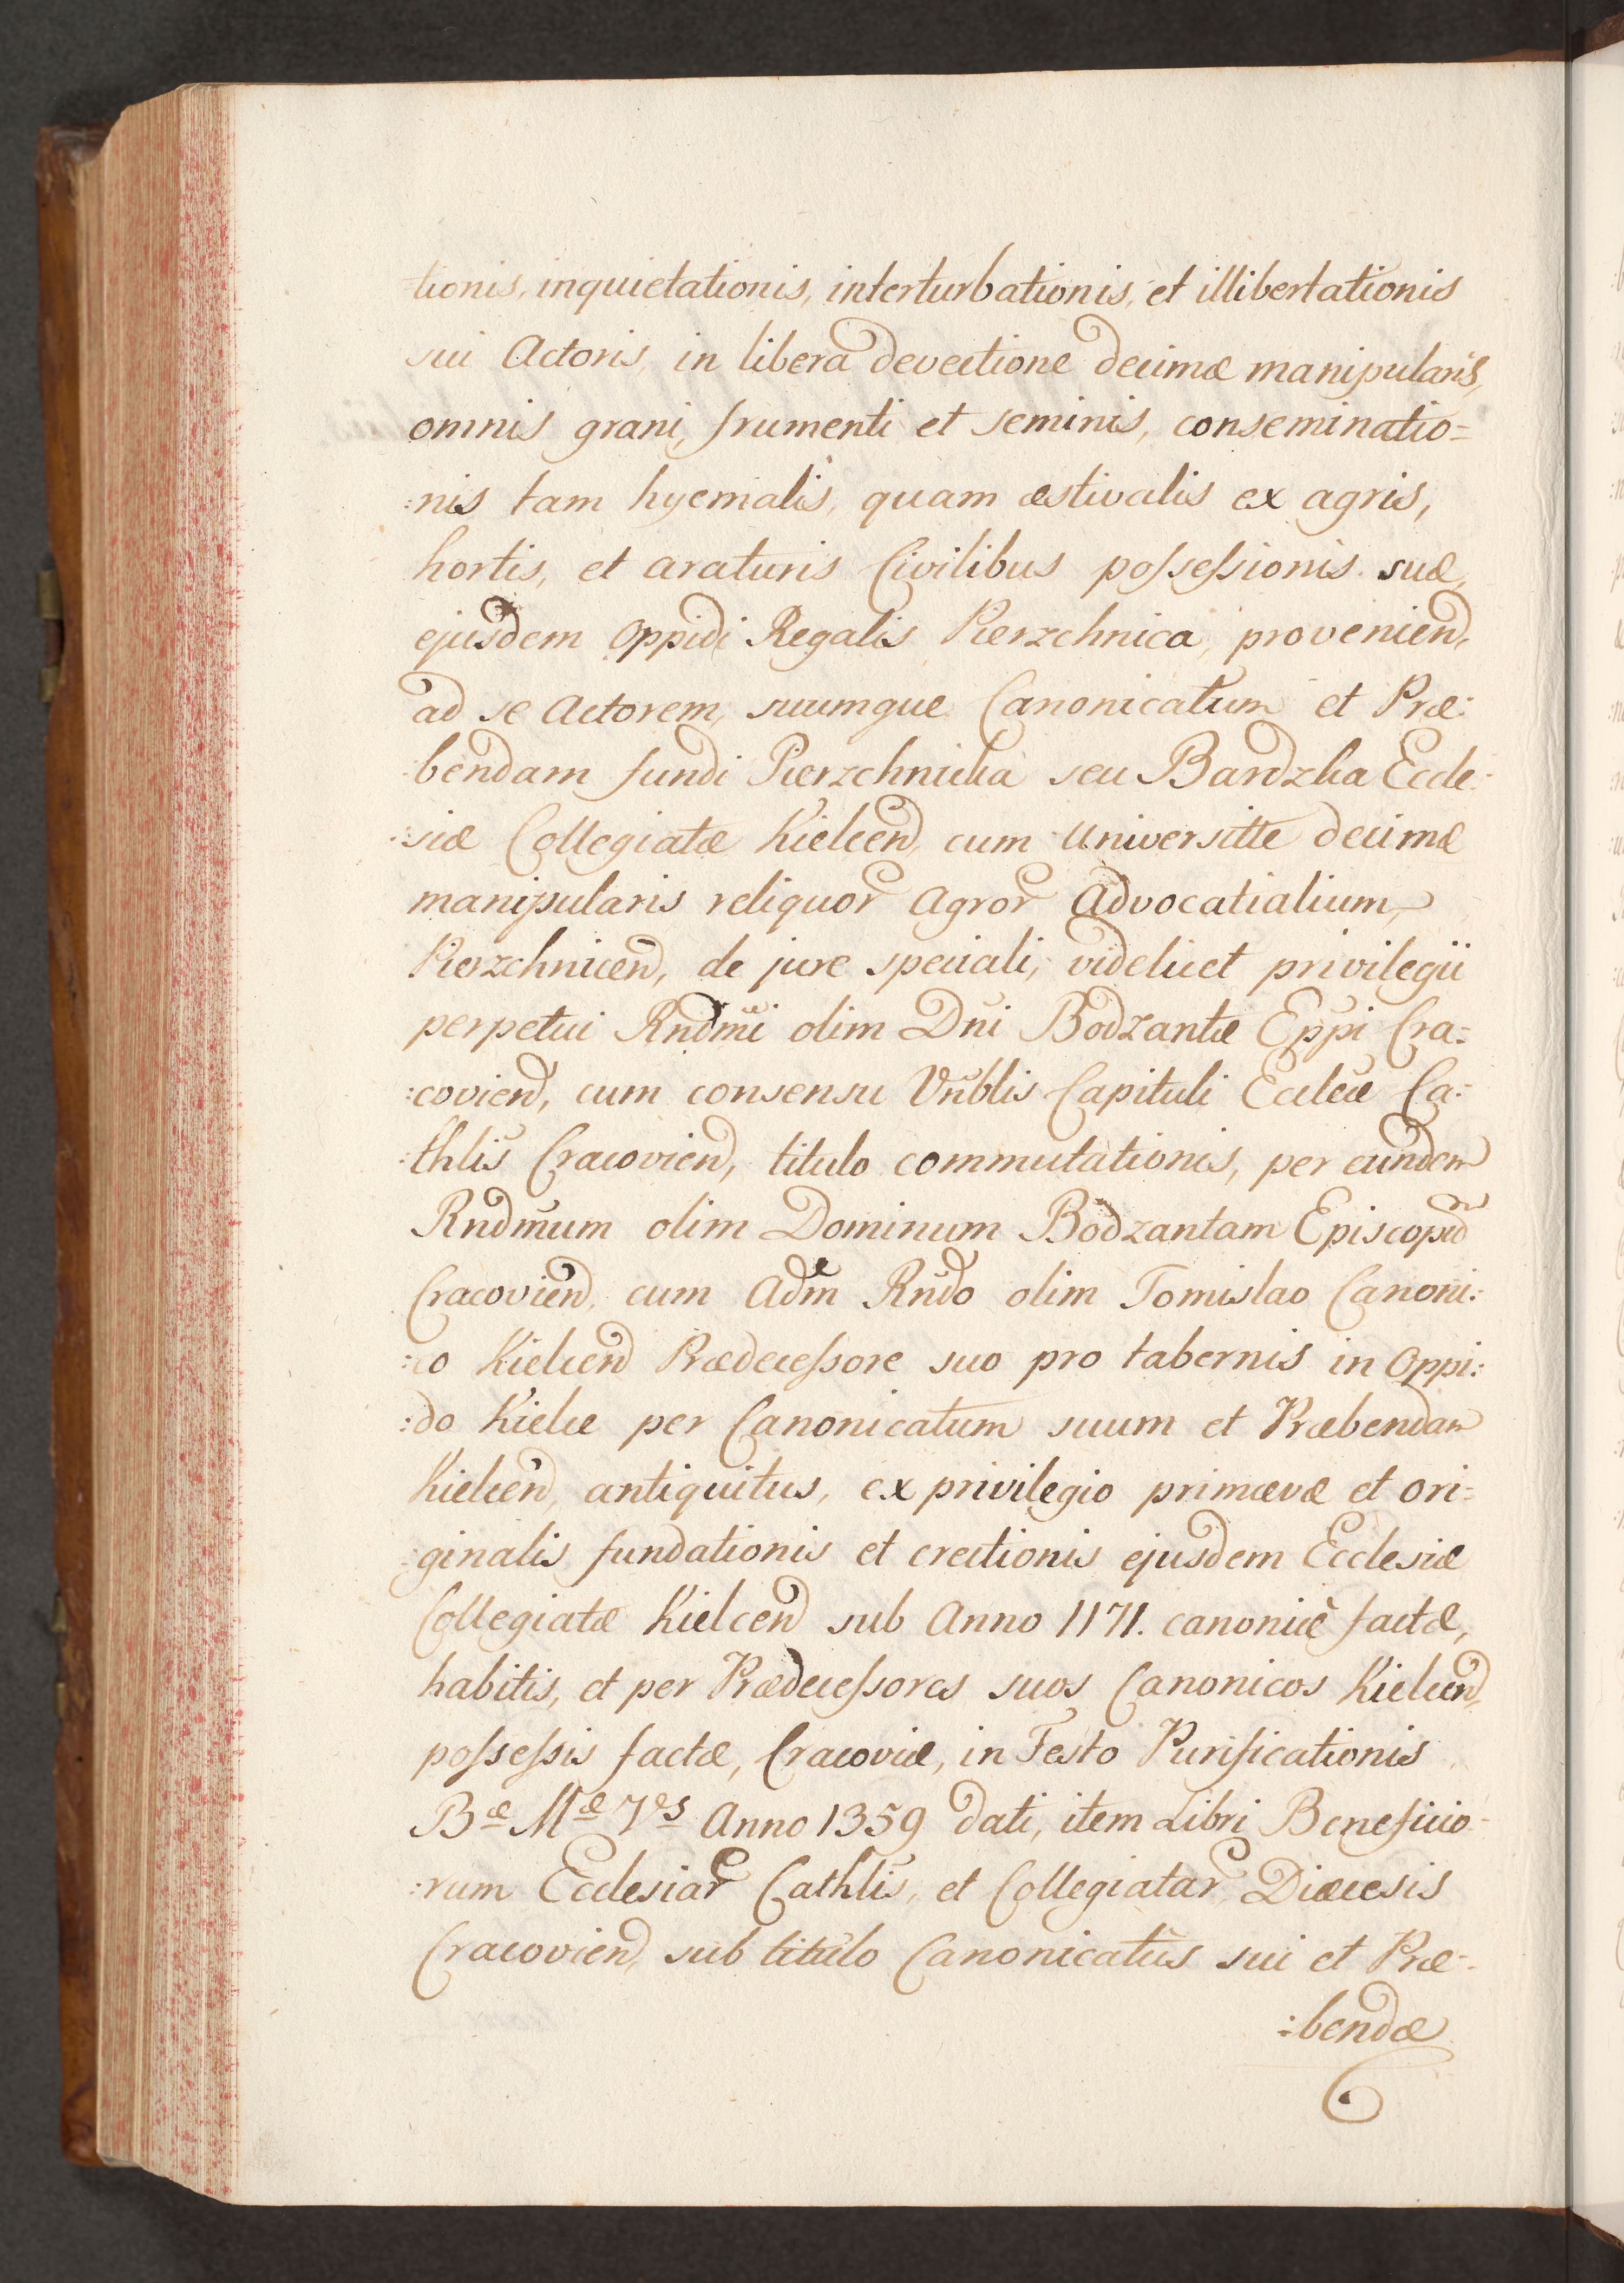 tionis, inquietationis, interturbationis, et illibertationis
sui Actoris, in libera devectione decimæ manipularis,
omnis grani, frumenti et seminis, conseminatio=
:nis tam hyemalis, quam æstivalis ex agris,
hortis, et araturis Civilibus possessionis suæ,
ejusdem Oppidi Regalis Pierzchnica, provenien̄,
ad se Actorem, suumque Canonicatum et Præ:
:bendam fundi Pierzchnicka seu Bardzka Eccle:
:siæ Collegiatæ Kielcen̄, cum Universitte decimæ
manipularis reliquor̄ Agror̄ Advocatialium,
Pierzchnicen̄, de jure speciali, videlicet privilegii
perpetui Rndm̄i olim Dn̄i Bodzantæ Epp̄i Cra=
:covien̄, cum consensu Vn̄blis Capituli Eccl̄æ Ca:
:thl̄is Cracovien̄, titulo commutationis, per eundem
Rndm̄um olim Dominum Bodzantam Episcopum
Cracovien̄, cum Adm̄ Rn̄do olim Tomislao Canoni:
:co Kielcen̄ Prædecessore suo pro tabernis in Oppi:
:do Kielce per Canonicatum suum et Præbendam
Kielcen̄, antiquitus, ex privilegio primævæ et ori=
:ginalis fundationis et erectionis ejusdem Ecclesiæ
Collegiatæ Kielcen̄ sub Anno 1171. canonicè factæ,
habitis, et per Prædecessores suos Canonicos Kielcen̄,
possessis factæ, Cracoviæ, in Festo Purificationis
Bæ Mæ Vs Anno 1359 dati, item Libri Beneficio=
:rum Ecclesiar̄ Cathl̄is, et Collegiatar̄ Diæcesis
Cracovien̄, sub titulo Canonicatûs sui et Præ=
:bendæ